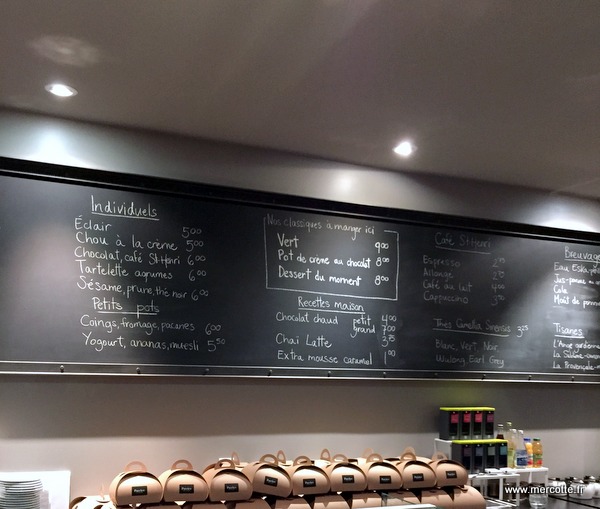 Individuels
Éclair 5.00
Chou à la crème 5.00
Chocolat, café St-Henri 6.00
Tartelette agrumes 6.00
Sésame, prune, thé noir 6.00
Petits pots
Coings, fromage, pacanes 6.00
Yogourt, ananas, muesli 5.50
Nos classiques à manger ici
Vert 9.00
Pot de crème au chocolat 8.00
Dessert du moment 8.00
Recettes maison
Chocolat chaud petit 4.00
grand 7.00
Chai Latte 3.75
Extra mousse caramel 1.00
Café St-Henri
Espresso
Allongé
Café au lait
Cappuccino
Thés Camellia Sinensis 3.25
Blanc, Vert, Noir
Wulong, Earl Grey
Breuvage
Eau Eska
Cola
Moût de pomme
Tisanes
www.mercotte.fr